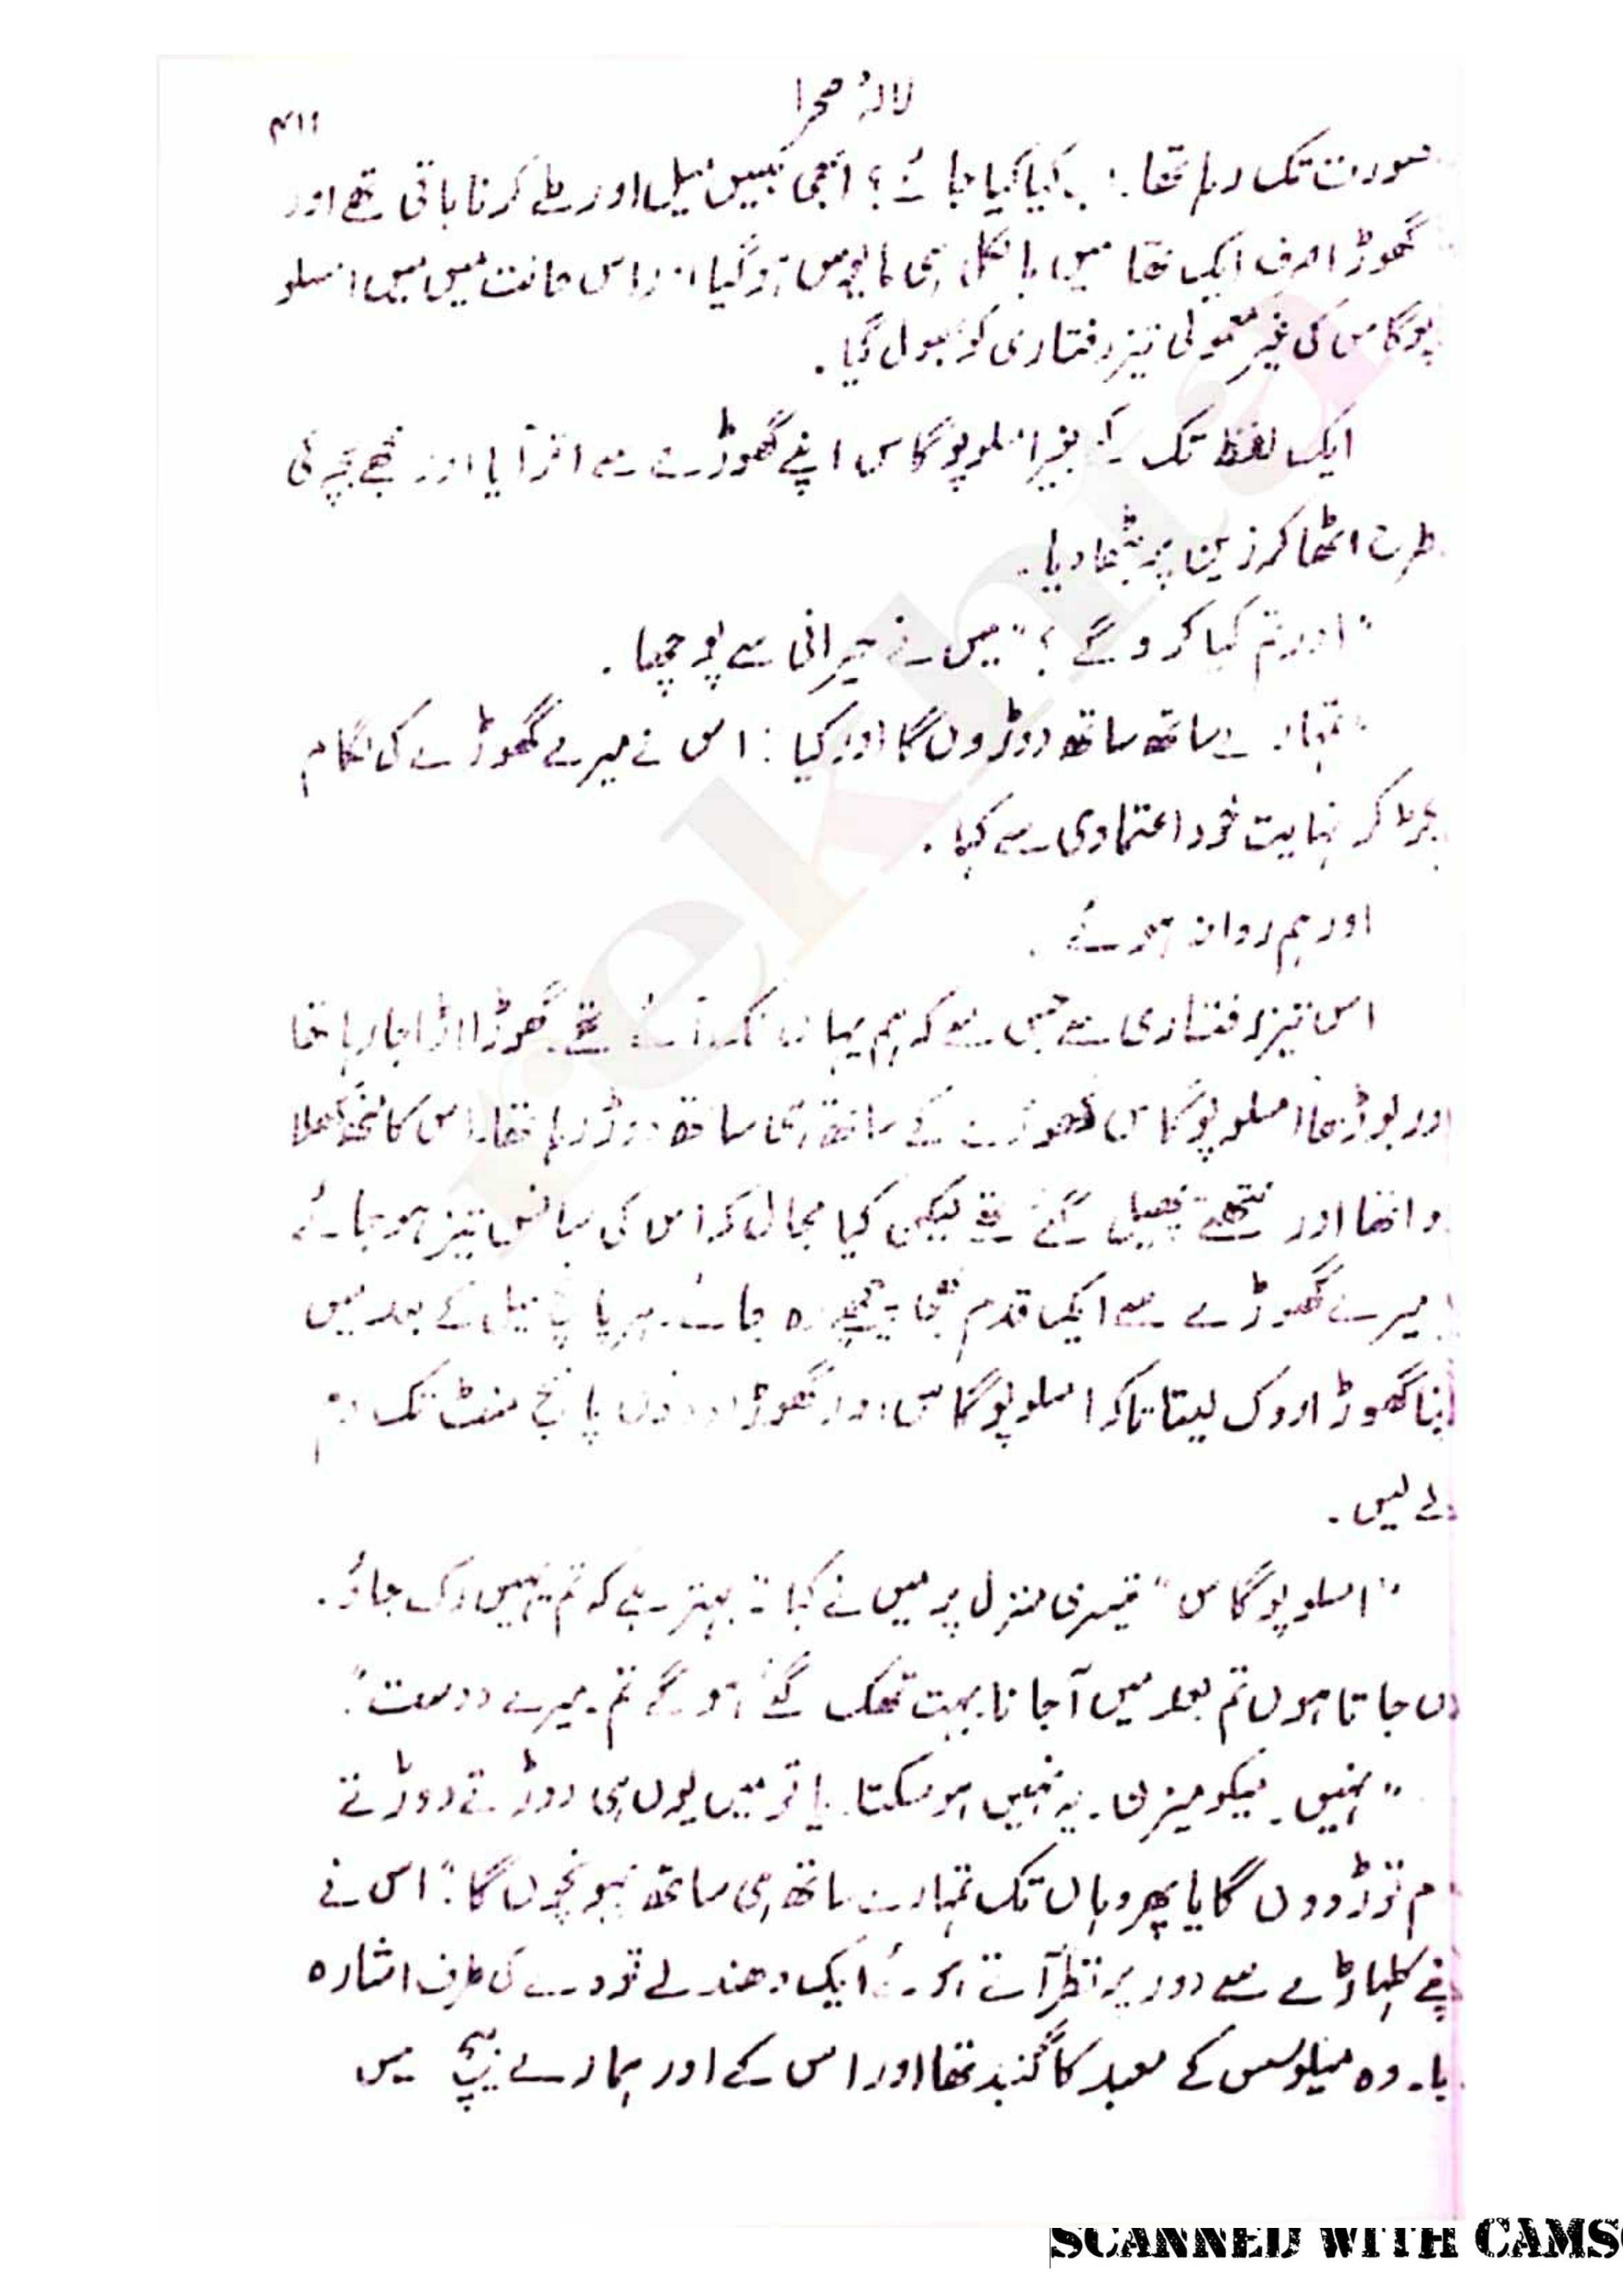 لالۂ صحرا
۴۱۱
صورت تک رہا تھا۔ کیا کیا جائے؟ ابھی تیس میل اور طے کرنا باقی تھے اور
گھوڑا صرف ایک تھا میں بالکل ہی مایوس ہو گیا اور اس حالت میں میں امسلو
پوگاس کی غیر معمولی تیز رفتاری کو بھول گیا۔
ایک لفظ تک کہے بغیر امسلوپوگاس اپنے گھوڑے سے اتر آیا اور مجھے بچے کی
طرح اٹھا کر زین پر بٹھا دیا۔
"اور تم کیا کرو گے؟" میں نے حیرانی سے پوچھا۔
"تمہارے ساتھ ساتھ دوڑوں گا اور کیا" اس نے میرے گھوڑے کی لگام
پکڑ کر نہایت خود اعتمادی سے کہا۔
اور ہم روانہ ہوئے۔
اس تیز رفتاری سے جس سے کہ ہم یہاں تک آئے تھے۔ گھوڑا اڑا جا رہا تھا
اور بوڑھا امسلوپوگاس گھوڑے کے ساتھ ہی ساتھ دوڑ رہا تھا۔ اس کا منھ کھلا
ہوا تھا اور نتھنے پھیل گئے تھے لیکن کیا مجال کہ اس کی سانس تیز ہو جائے
یا میرے گھوڑے سے ایک قدم بھی پیچھے رہ جائے۔ ہر پانچ میل کے بعد میں
اپنا گھوڑا روک لیتا تاکہ امسلوپوگاس اور گھوڑا دونوں پانچ منٹ تک دم
لے لیں۔
"امسلوپوگاس" تیسری منزل پر میں نے کہا "بہتر ہے کہ تم یہیں رک جاؤ۔
میں جاتا ہوں تم بعد میں آ جانا بہت تھک گئے ہو گے تم۔ میرے دوست"۔
"نہیں۔ میکومیزن۔ یہ نہیں ہو سکتا۔ یا تو میں یوں ہی دوڑتے دوڑتے
دم توڑ دوں گا یا پھر وہاں تک تمہارے ساتھ ہی ساتھ پہونچوں گا"۔ اس نے
اپنے کلہاڑے سے دور پر نظر آتے ہوئے ایک دھندلے تودے کی طرف اشارہ
کیا۔ وہ میلوسس کے معبد کا گنبد تھا اور اس کے اور ہمارے بیچ میں
SCANNED WITH CAMS
rekhta